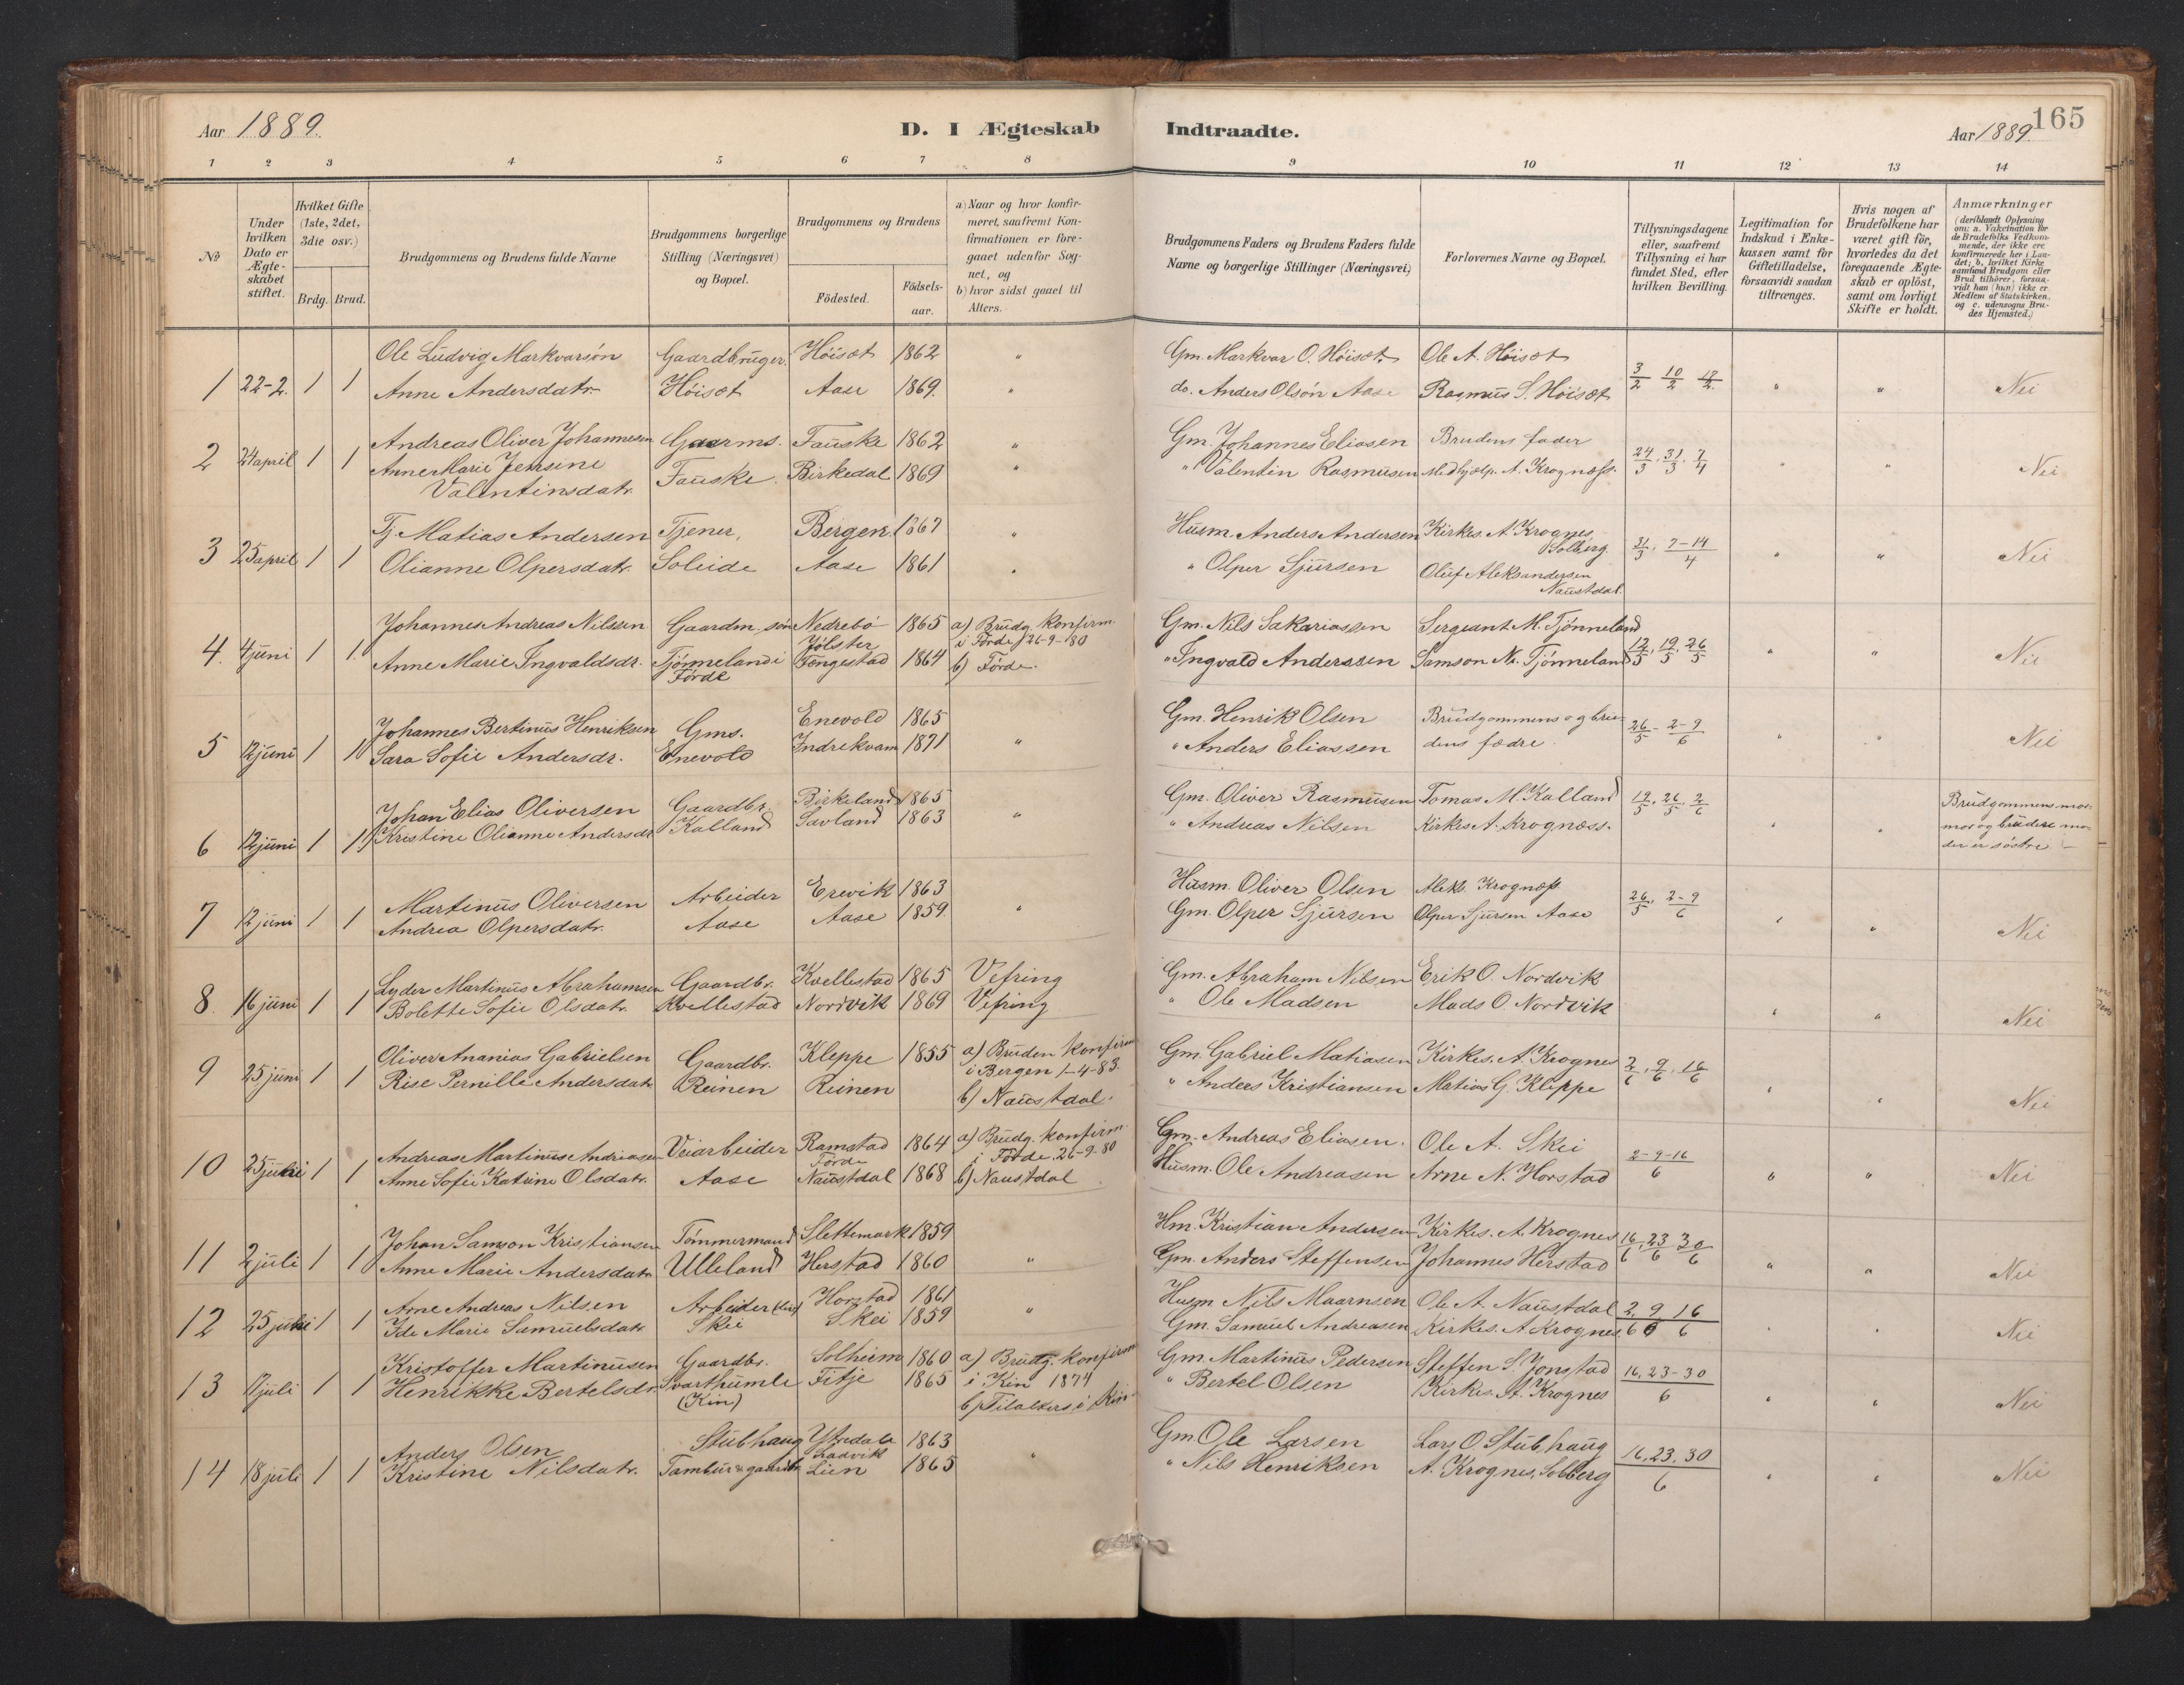 165
Aar 1889. D. I Ægteskab Indtraadte. Aar 1889.
1 2 3 4 5 6 7 8 9 10 11 12 13 14
No
Under hvilken Dato er Ægteskabet stiftet.
Hvilket Gifte (1ste, 2det, 3die osv.)
Brdg. Brud.
Brudgommens og Brudens fulde Navne
Brudgommens borgerlige Stilling (Næringsvei) og Bopæl.
Brudgommens og Brudens
Födested. Födsels-aar.
a) Naar og hvor konfir-
meret, saafremt Kon-
firmationen er fore-
gaaet udenfor Sog-
net, og
b) hvor sidst gaaet til
Alters.
Brudgommens Faders og Brudens Faders fulde
Navne og borgerlige Stillinger (Næringsvei)
Forlovernes Navne og Bopæl.
Tillysningsdagene
eller, saafremt
Tillysning ei har
fundet Sted, efter
hvilken Bevilling.
Legitimation for
Indskud i Enke-
kassen samt for
Giftetilladelse,
forsaavidt saadan
tiltrænges.
Hvis nogen af
Brudefolkene har
været gift för,
hvorledes da det
foregaaende Ægte-
skab er oplöst,
samt om lovligt
Skifte er holdt.
Anmærkninger
(deriblandt Oplysning
om: a. Vakcination för
de Brudefolks Vedkom-
mende, der ikke ere
konfirmerede her i Lan-
det; b. hvilket Kirke
samfund Brudgom eller
Brud tilhörer, forsaa-
vidt han (hun) ikke er
Medlem af Statskirken,
og c. udensogns Bru-
des Hjemsted.)
Ole Ludvig Markvarsön Gaardbruger. Höisæt 1862 " Gm. Markvar O. Höisæt Ole A. Höisæt
1 22-2. 1 1 Anne Andersdatr. Höisæt Aase 1869. " do. Anders Olsön Aase Rasmus S. Höisæt 3/2 10/2 " " Nei
Andreas Oliver Johannesen Gaarms. Fauske 1862 " Gm. Johannes Eliasen Brudens fader
2 24 april 1 1 Anne Marie Jensine Fauske. Birkedal 1869 " " Valentin Rasmusen Medhjælp. A. Krognæss. 24/3, 31/3, 7/4 " " Nei
Valentinsdatr.
Tj. Matias Andersen Tjener, Bergen. 1867 " Husm. Anders Andersen Kirkes. A. Krognes, Solberg.
3 25 april 1 1 Olianne Olpersdatr. Soleide Aase 1861 " " Olper Sjursen Oluf Aleksandersen Naustdal. 31/3, 7-14/4 " " Nei
Johannes Andreas Nilsen Gaardm. sön Nedrebö Jölster 1865 a) Brudg. konfirm. i Förde 26-9-80 Gm. Nils Sakariassen Sergeant M. Tjönneland
4. 4 juni 1 1. Anne Marie Ingvaldsdr. Tjönneland i Förde Fengestad 1864 b) Förde. " Ingvald Anderssen Samson N. Tjönneland 12/5, 19/5, 26/5 " " Nei
Johannes Bertinus Henriksen Gms. Enevold 1865 Gm. Henrik Olsen Brudgommens og bru-
5 12 juni 1 1 Sara Sofie Andersdr. Enevold Indrekvam 1871 " " Anders Eliassen dens fædre. 26/5 - 2-9/6 " " Nei
Johan Elias Oliversen Gaardbr. Birkeland 1865 Gm. Oliver Rasmusen Tomas M. Kalland 19/5, 26/5, 2/6 Brudgommens mor-
6 12 juni 1 1 Kristine Olianne Andersdr. Kalland Savland 1863 " " Andreas Nilsen Kirkes A. Krognæss. " " mor og brudens mo-
der er söstre
Martinus Oliversen Arbeider Erevik 1863 Husm. Oliver Olsen Aleks. Krognæss
7 12 juni 1 1 Andrea Olpersdatr. Aase Aase 1859 " Gm. Olper Sjursen Olper Sjursen Aase 26/5, 2-9/6 " " Nei
Lyder Martinus Abrahamsen Gaardbr. Kvellestad 1865 Vefring Gm. Abraham Nilsen Erik O. Nordvik
8. 16 juni 1 1 Bolette Sofie Olsdatr. Kvellestad Nordvik 1869 Vefring " Ole Madsen Mads O. Nordvik " " Nei
Oliver Ananias Gabrielsen Gaardbr. Kleppe 1855 a) Bruden konfirm i Bergen 1-4-83. Gm. Gabriel Matiasen Kirkes. A. Krognes
9 25 juni 1 1 Rise Pernille Andersdatr. Reinen Reinen b) Naustdal. " Anders Kristiansen Matias G. Kleppe 2/6, 9/6, 16/6 " " Nei
Andreas Martinus Andreasen Veiarbeider Ramstad Förde 1864 a) Brudg. konfirm. i Förde 26-9-80 Gm. Andreas Eliasen. Ole A. Skei
10 25 1 1 Anne Sofie Katrine Olsdatr. Aase Naustdal 1868 b) Naustdal Husm. Ole Andreasen Arne N. Horstad 2-9-16/6 " " Nei
Johan Samson Kristiansen Tömmermand Slettemark 1859 Hm. Kristian Andersen Kirkes. A. Krognes
11 2 juli 1 1 Anne Marie Andersdatr. Ulleland Herstad 1860 " Gm. Anders Steffensen Johannes Herstad 16/6, 23/6 30/6 " " Nei
Arne Andreas Nilsen Arbeider Horstad 1861 Husm Nils Maarnsen Ole A. Naustdal
12 25 1 1 Ide Marie Samuelsdatr. Skei Skei 1859 " Gm. Samuel Andreasen Kirkes. A. Krognes. 2. 9 16/6 " " Nei
Kristoffer Martinusen Gaardbr. Solheim 1860 a) Brudg. konfirm i Kin 1874 Gm. Martinus Pedersen Steffen S. Jonstad
13 juli 1 1 Henrikke Bertelsdr. Svarthumle (Kin) Fitje 1865 b) Tilalters i Kin " Bertel Olsen Kirkes. A. Krognes 16, 23-30/6 " " Nei
Anders Olsen Stubhaug Ytredale Ladvik 1863 Gm Ole Larsen Lars O. Stubhaug
14 18 juli 1 1 Kristine Nilsdatr. Tambur Lien 1865 " " Nils Henriksen A. Krognes, Solberg 16, 23. 30/6 " " Nei